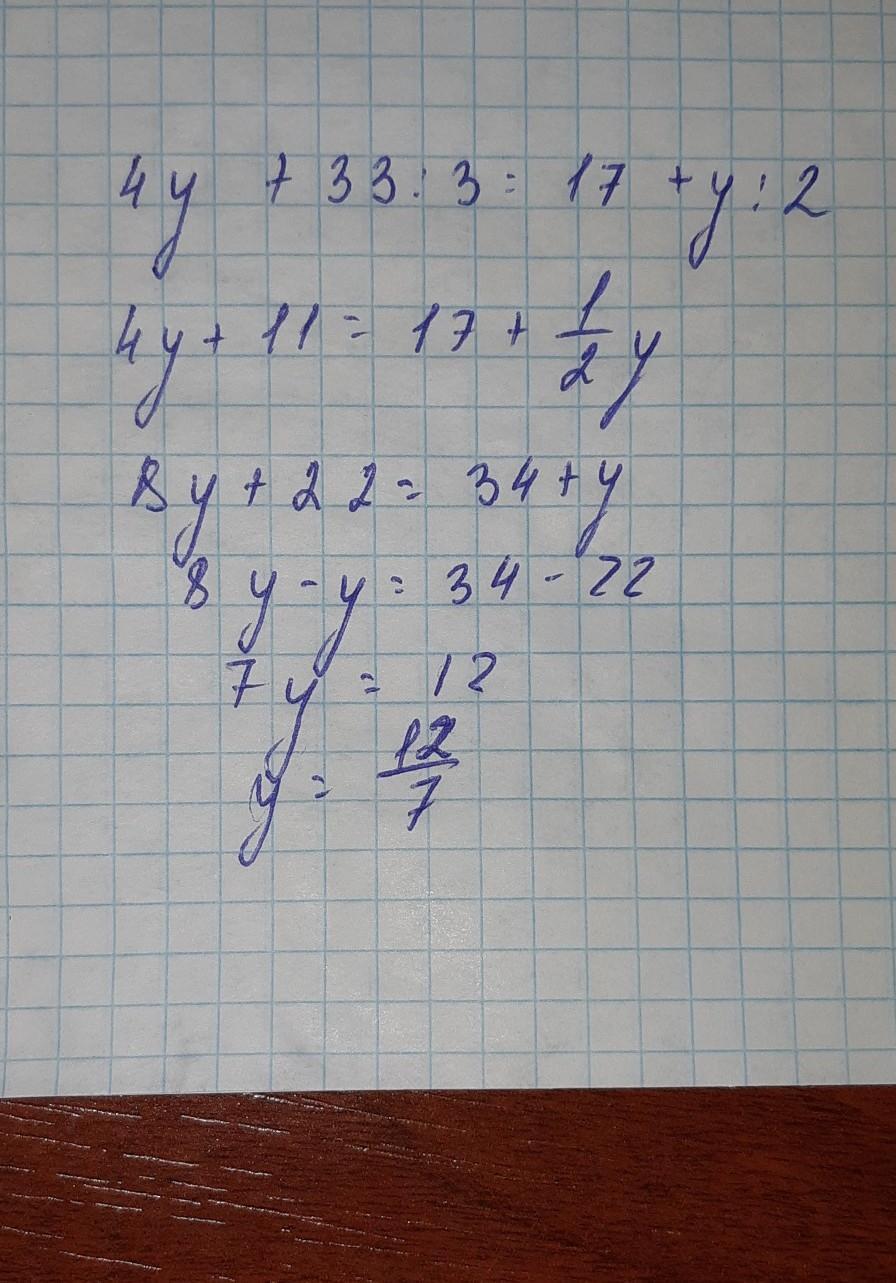 4y + 33 : 3 = 17 + y : 2
4y + 11 = 17 + 1/2 y
8y + 22 = 34 + y
8y - y = 34 - 22
7y = 12
y = 12/7